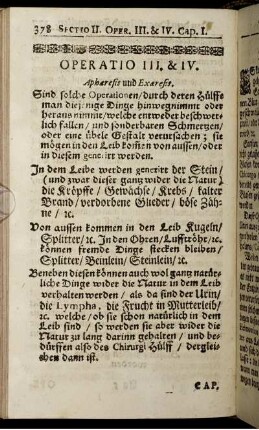 378 SECTIO II. OPER. III. & IV. Cap. I.
OPERATIO III. & IV.
Aphæresis und Exæresis.
Sind solche Operationen / durch deren Hülffe
man diejenige Dinge hinwegnimmt oder
heraus nimmt / welche entweder beschwer-
lich fallen / und sonderbaren Schmertzen /
oder eine übele Gestalt verursachen; sie
mögen in den Leib kommen von aussen / oder
in diesem generirt werden.
In dem Leibe werden generirt der Stein /
(und zwar dieser gantz wider die Natur)
die Kröpffe / Gewächse / Krebs / kalter
Brand / verdorbene Glieder / böse Zäh-
ne / ꝛc.
Von aussen kommen in den Leib Kugeln /
Splitter / ꝛc. In den Ohren / Lufftröhr / ꝛc.
können fremde Dinge stecken bleiben /
Splitter / Beinlein / Steinlein / ꝛc.
Beneben diesen können auch wol gantz natür-
liche Dinge wider die Natur in dem Leib
verhalten werden / als da sind der Urin /
die Lympha, die Frucht in Mutterleib /
ꝛc. welche / ob sie schon natürlich in dem
Leib sind / so werden sie aber wider die
Natur zu lang darinn gehalten / und be-
dürffen also des Chirurgi Hülff / derglei-
chen dann ist.
CAP.